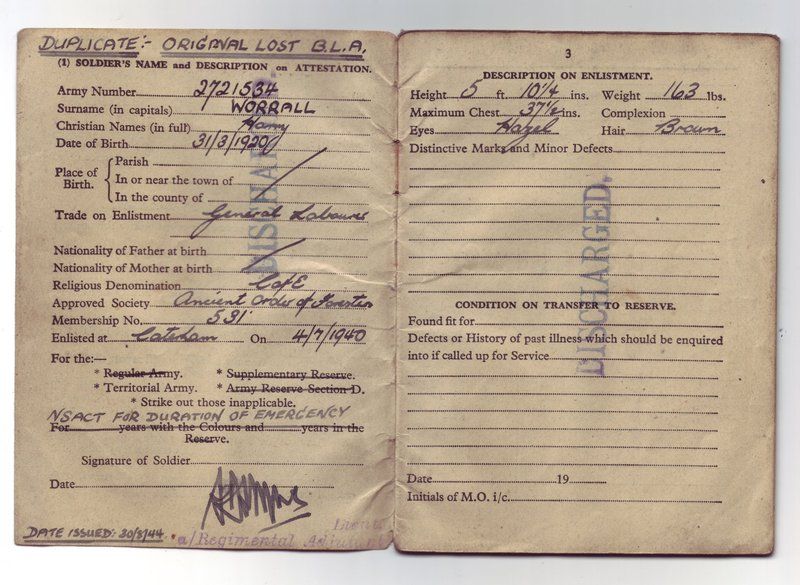 DUPLICATE:- ORIGINAL LOST B.L.A.
(1) SOLDIER'S NAME and DESCRIPTION on ATTESTATION.
Army Number 2721534
Surname (in capitals) WORRALL
Christian Names (in full) Harry
Date of Birth 31/3/1920
Place of Birth.
Parish
In or near the town of
In the county of
Trade on Enlistment General Labourer
Nationality of Father at birth
Nationality of Mother at birth
Religious Denomination C of E
Approved Society Ancient Order of Foresters
Membership No. 531
Enlisted at Caterham On 4/7/1940
For the:—
* Regular Army. * Supplementary Reserve.
* Territorial Army. * Army Reserve Section D.
* Strike out those inapplicable.
NSACT FOR DURATION OF EMERGENCY
For years with the Colours and years in the
Reserve.
Signature of Soldier
Date
Lieut
a/Regimental Adjutant
DATE ISSUED:- 30/8/44.
DISCHARGED.
3
DESCRIPTION ON ENLISTMENT.
Height 5 ft. 10¼ ins. Weight 163 lbs.
Maximum Chest 37½ ins. Complexion
Eyes Hazel Hair Brown
Distinctive Marks and Minor Defects
DISCHARGED.
CONDITION ON TRANSFER TO RESERVE.
Found fit for
Defects or History of past illness which should be enquired
into if called up for Service
Date 19
Initials of M.O. i/c